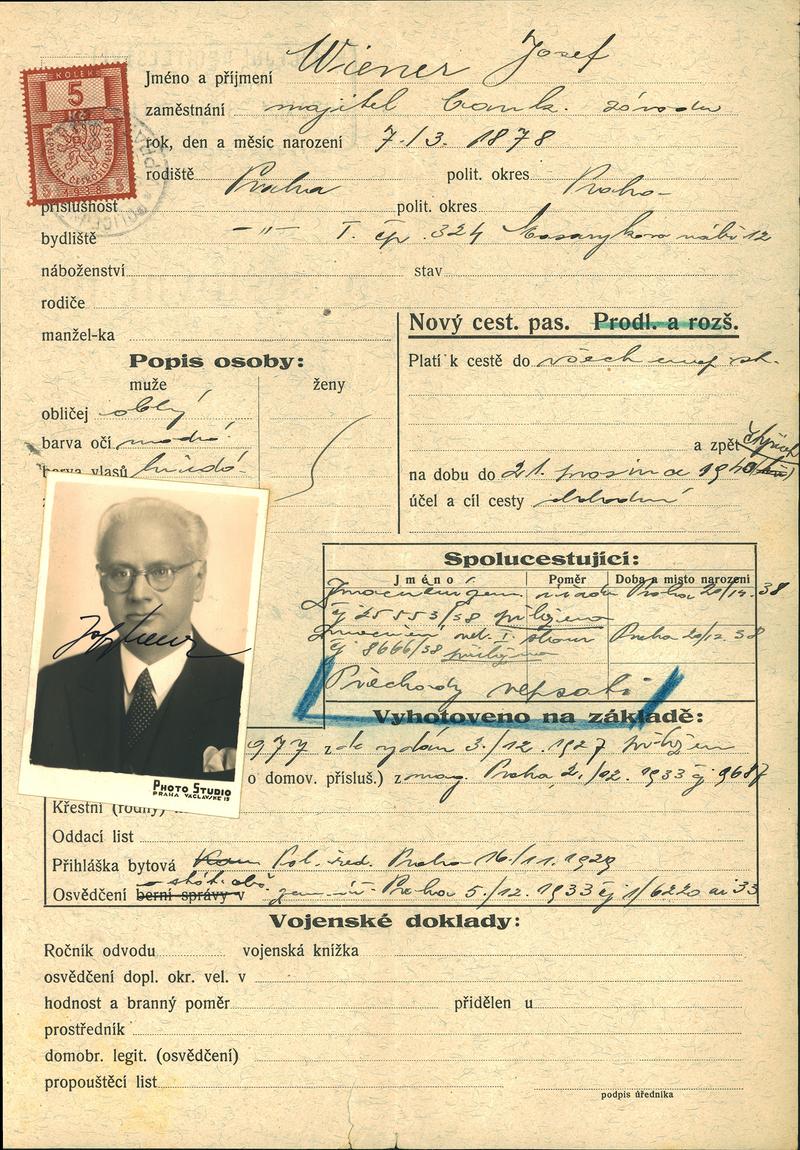 KOLEK
5
Kč
REPUBLIKA ČESKOSLOVENSKÁ
5 1938 5
Jméno a příjmení Wiener Josef
zaměstnání majitel bank. závodu
rok, den a měsíc narození 7./3. 1878
rodiště Praha polit. okres Praha
příslušnost polit. okres
bydliště –"– I. čp. 324 Masarykovo nábř 12
náboženství stav
rodiče
manžel-ka
Nový cest. pas. Prodl. a rozš.
Popis osoby:
muže ženy
Platí k cestě do všech
obličej oblý
barva očí modré
a zpět
barva vlasů hnědé
na dobu do 21. prosince 1940
účel a cíl cesty obchodní
Spolucestující:
Jméno Poměr Doba a místo narození
Praha 20/12. 38
čj 25553/38 přiložena
Praha 20/12. 38
čj 8666/38 přiložena
Přechody nepsati
Vyhotoveno na základě:
977 zde vydán 3./12. 1927 přiložen
o domov. přísluš.) z mag. Praha 21./12. 1933 čj 9687
Křestní (rodný)
Oddací list
Přihláška bytová Pol. řed. Praha 16/11. 1929
Osvědčení berní správy v Praha 5./12. 1933 čj 1/6220 ai 33
Vojenské doklady:
Ročník odvodu vojenská knížka
osvědčení dopl. okr. vel. v
hodnost a branný poměr přidělen u
prostředník
domobr. legit. (osvědčení)
propouštěcí list
podpis úředníka
PHOTO STUDIO
PRAHA VÁCLAVSKÉ 15